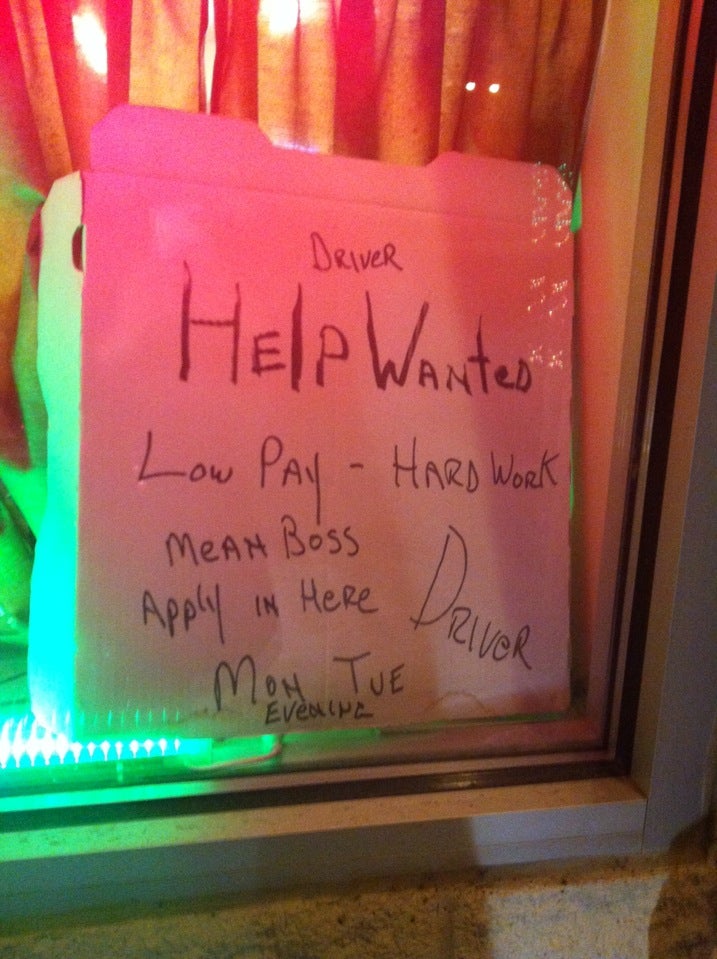 DRIVER
HELP WANTED
LOW PAY - HARD WORK
MEAN BOSS
APPLY IN HERE
DRIVER
MON TUE
EVENING